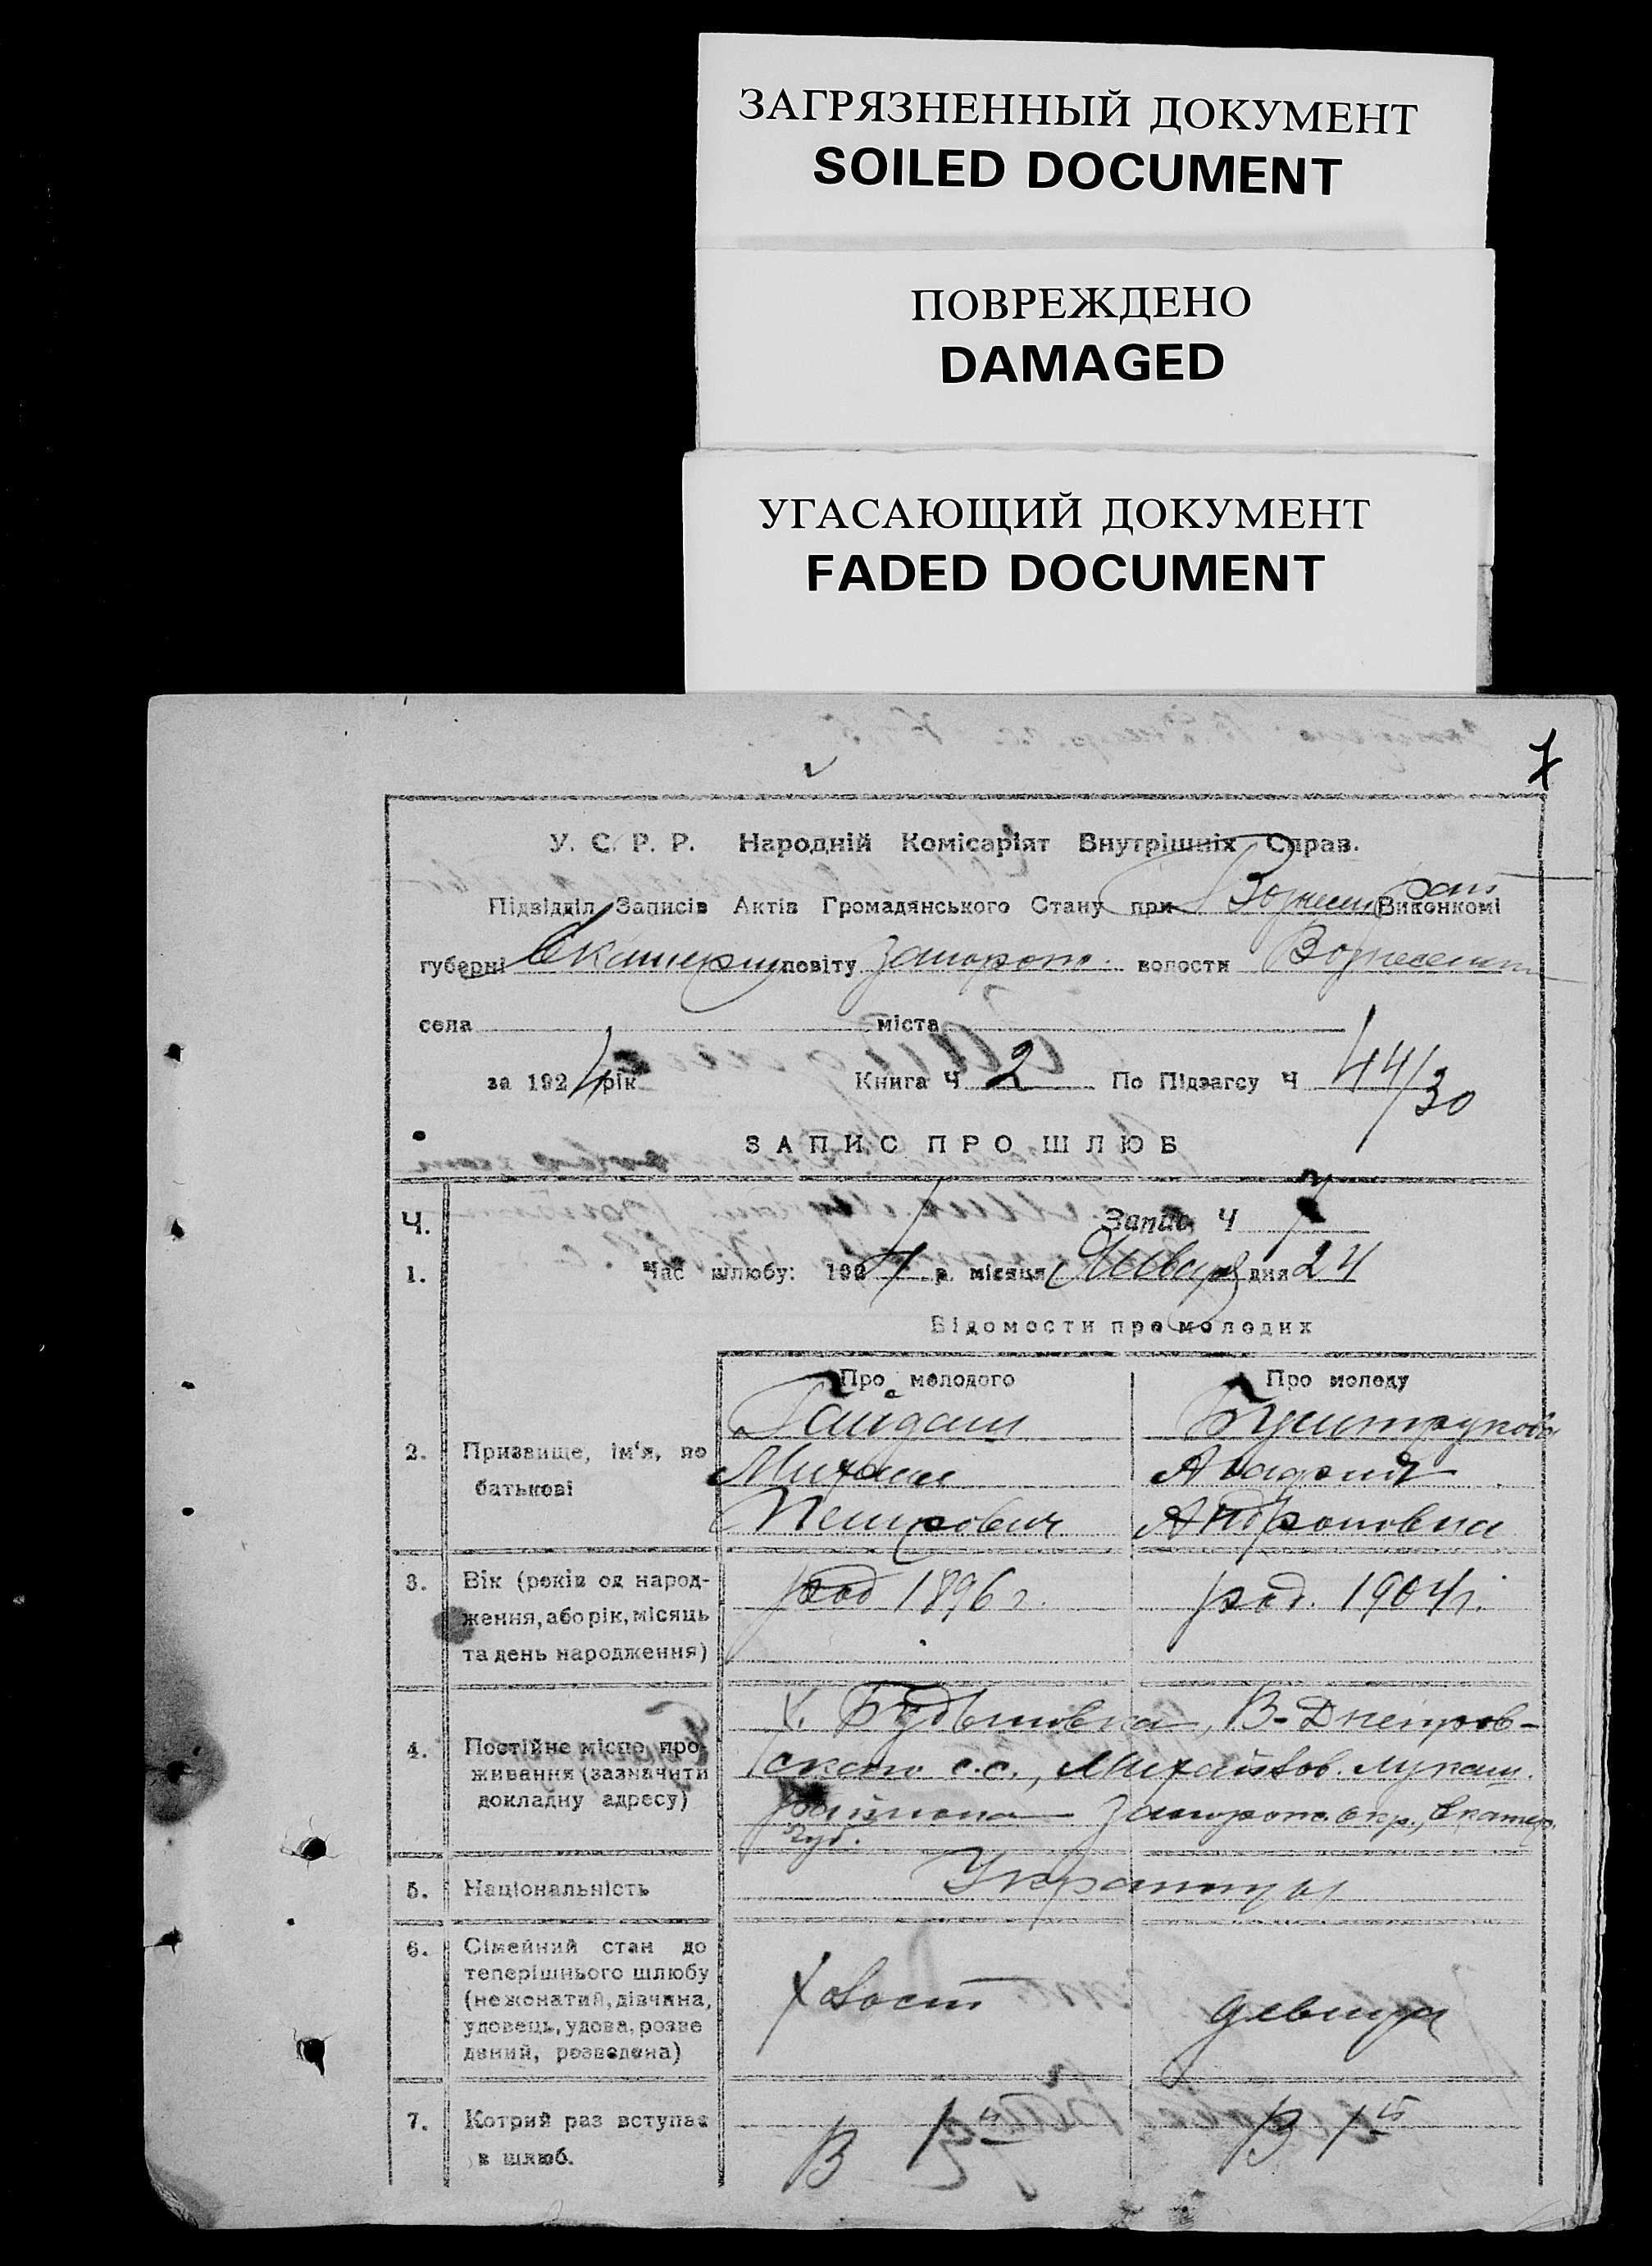 ЗАГРЯЗНЕННЫЙ ДОКУМЕНТ
SOILED DOCUMENT
ПОВРЕЖДЕНО
DAMAGED
УГАСАЮЩИЙ ДОКУМЕНТ
FADED DOCUMENT
7
У. С. Р. Р. Народній Комісаріят Внутрішніх Справ.
Підвідділ Записів Актів Громадянського Стану при Виконкомі
губерні Екатерин повіту Запорож. волости Вознесенск
села міста
за 1924 рік Книга Ч 2 По Підзагсу Ч 44/30
ЗАПИС ПРО ШЛЮБ
Ч. Запис Ч 7
1. Час шлюбу: 1924 р. місяця Января дня 24
Відомости про молодих
Про молодого Про молоду
Гайдаш
2. Призвище, ім'я, по
батькові
Михаил Агафия
Петрович Андроновна
3. Вік (років од народ-
ження, або рік, місяць
та день народження)
род 1896 г. род. 1904 г.
4. Постійне місце про-
живання (зазначити
докладну адресу)
х. В-Днепров-
ского с.с., Михайлов. Лукаш.
района Запорож. окр., Екатер.
губ.
5. Національність Украинцы
6. Сімейний стан до
теперішнього шлюбу
(нежонатий, дівчина,
удовець, удова, розве
дений, розведена)
холост девица
7. Котрий раз вступає
в шлюб.
В 1й В 1й